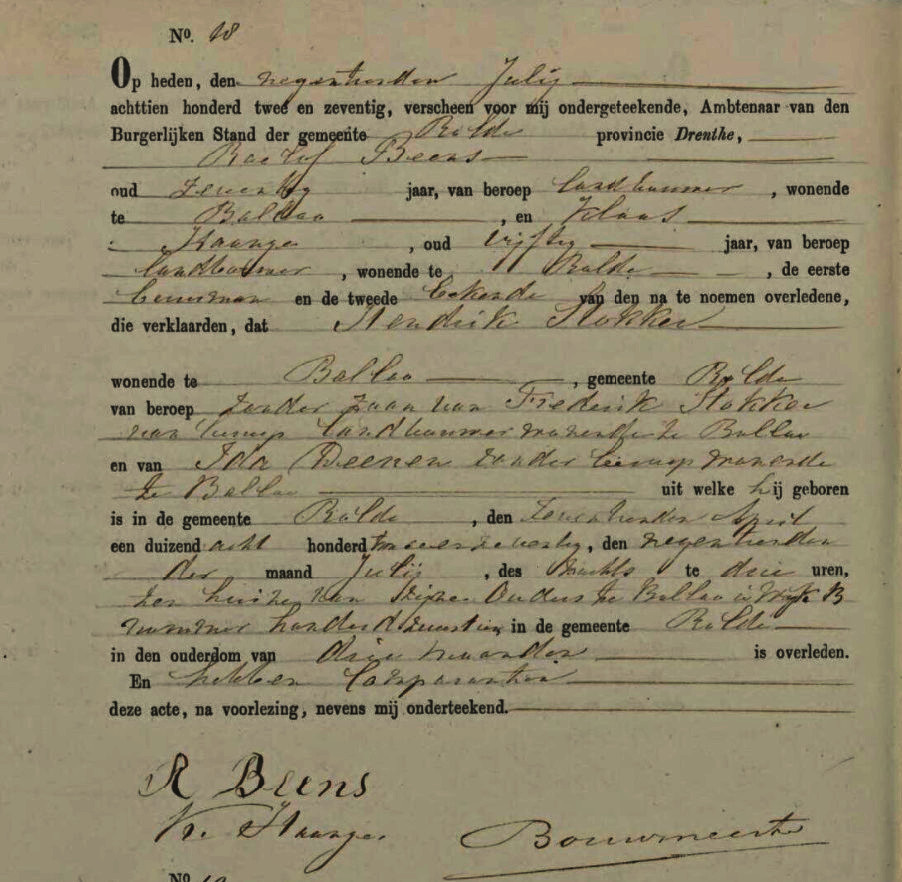 No. 18
Op heden, den negentienden Julij
achttien honderd twee en zeventig, verscheen voor mij ondergeteekende, Ambtenaar van den
Burgerlijken Stand der gemeente Rolde provincie Drenthe,
Roelof Beens
oud zeventig jaar, van beroep landbouwer, wonende
te Balloo, en Klaas
Haange, oud vijftig jaar, van beroep
landbouwer, wonende te Rolde, de eerste
buurman en de tweede bekende van den na te noemen overledene,
die verklaarden, dat Hendrik Hokker
wonende te Balloo, gemeente Rolde
van beroep zonder zoon van Frederik Hokker
van beroep landbouwer wonende te Balloo
en van Ida Deenen zonder beroep wonende
te Balloo uit welke hij geboren
is in de gemeente Rolde, den zeventienden April
een duizend acht honderd twee en zeventig, den negentienden
der maand Julij, des nachts te drie uren,
ten huize van zijne Ouders te Balloo in Wijk B
nummer honderd in de gemeente Rolde
in den ouderdom van drie maanden is overleden.
En hebben Comparanten
deze acte, na voorlezing, nevens mij onderteekend.
R Beens
Kl. Haange
Bouwmeester
No.